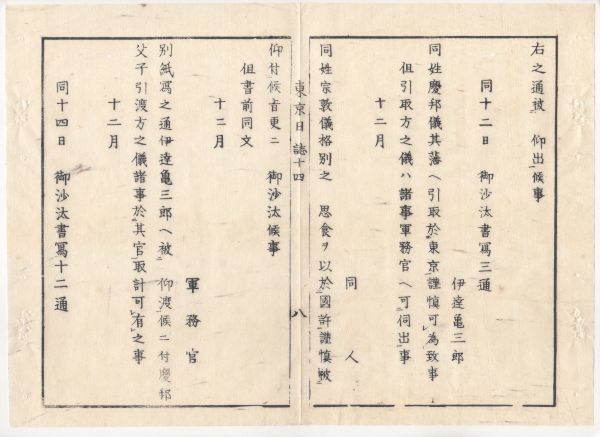 右之通被　仰出候事
同十二日　御沙汰書寫三通
伊達亀三郎
同姓慶邦儀其藩へ引取於東京謹慎可為致事
但引取方之儀ハ諸事軍務官へ可伺出事
十二月
同　人
同姓宗敦儀格別之　思食ヲ以於國許謹慎被
東京日誌十四　八
仰付候旨更ニ　御沙汰候事
但書前同文
十二月
軍務官
別紙寫之通伊達亀三郎へ被　仰渡候ニ付慶邦
父子引渡方之儀諸事於其官取計可有之事
十二月
同十四日　御沙汰書寫十二通